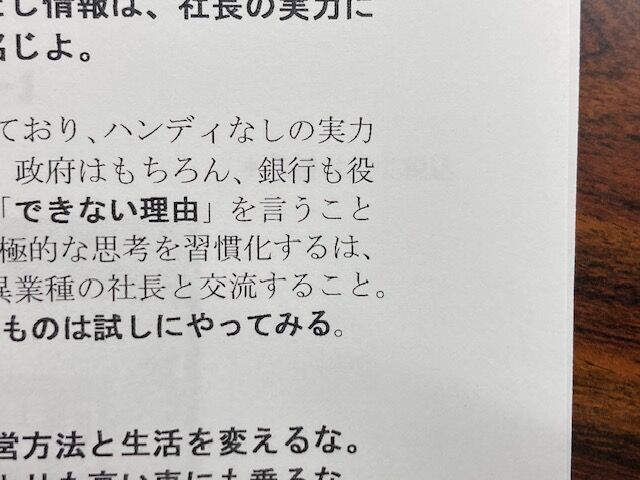 とし情報は、社長の実力に
銘じよ。
ており、ハンディなしの実力
政府はもちろん、銀行も役
「できない理由」を言うこと
極的な思考を習慣化するは、
異業種の社長と交流すること。
ものは試しにやってみる。
営方法と生活を変えるな。
も高い車にも乗るな